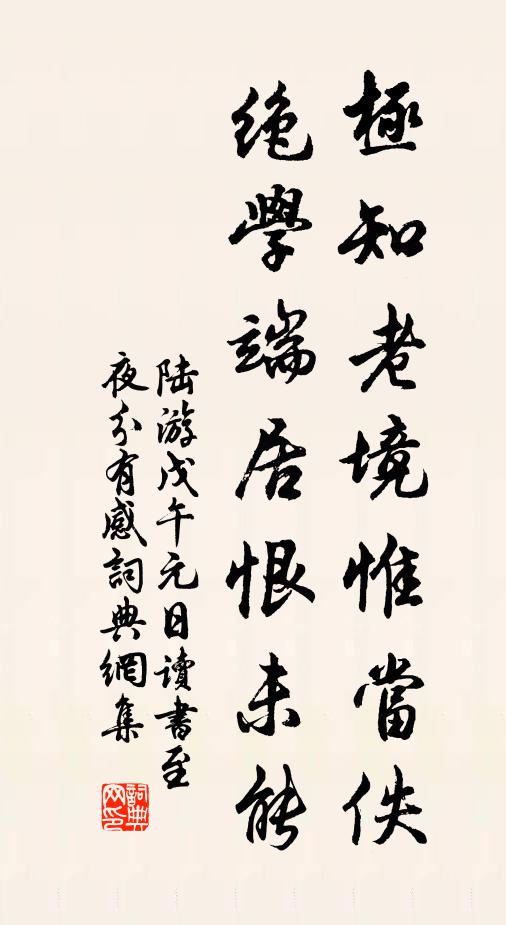 極知老境惟當佚
絶學端居恨未能
陆游戊午元日讀書至
夜分有感詞典網集
詞典网印